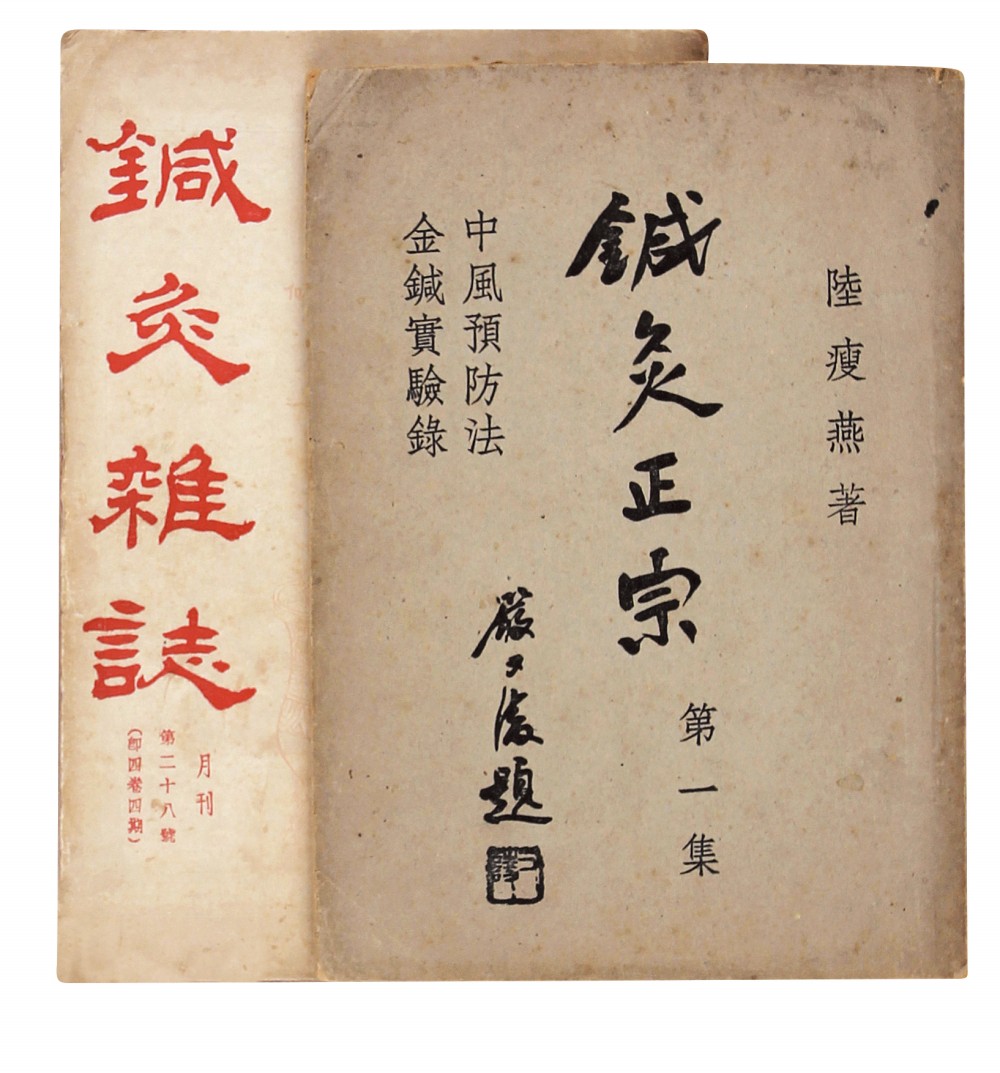 陸瘦燕著
鍼灸正宗
第一集
中風預防法
金鍼實驗錄
嚴
題
鍼灸雜誌
月刊
第二十八號
(即四卷四期)